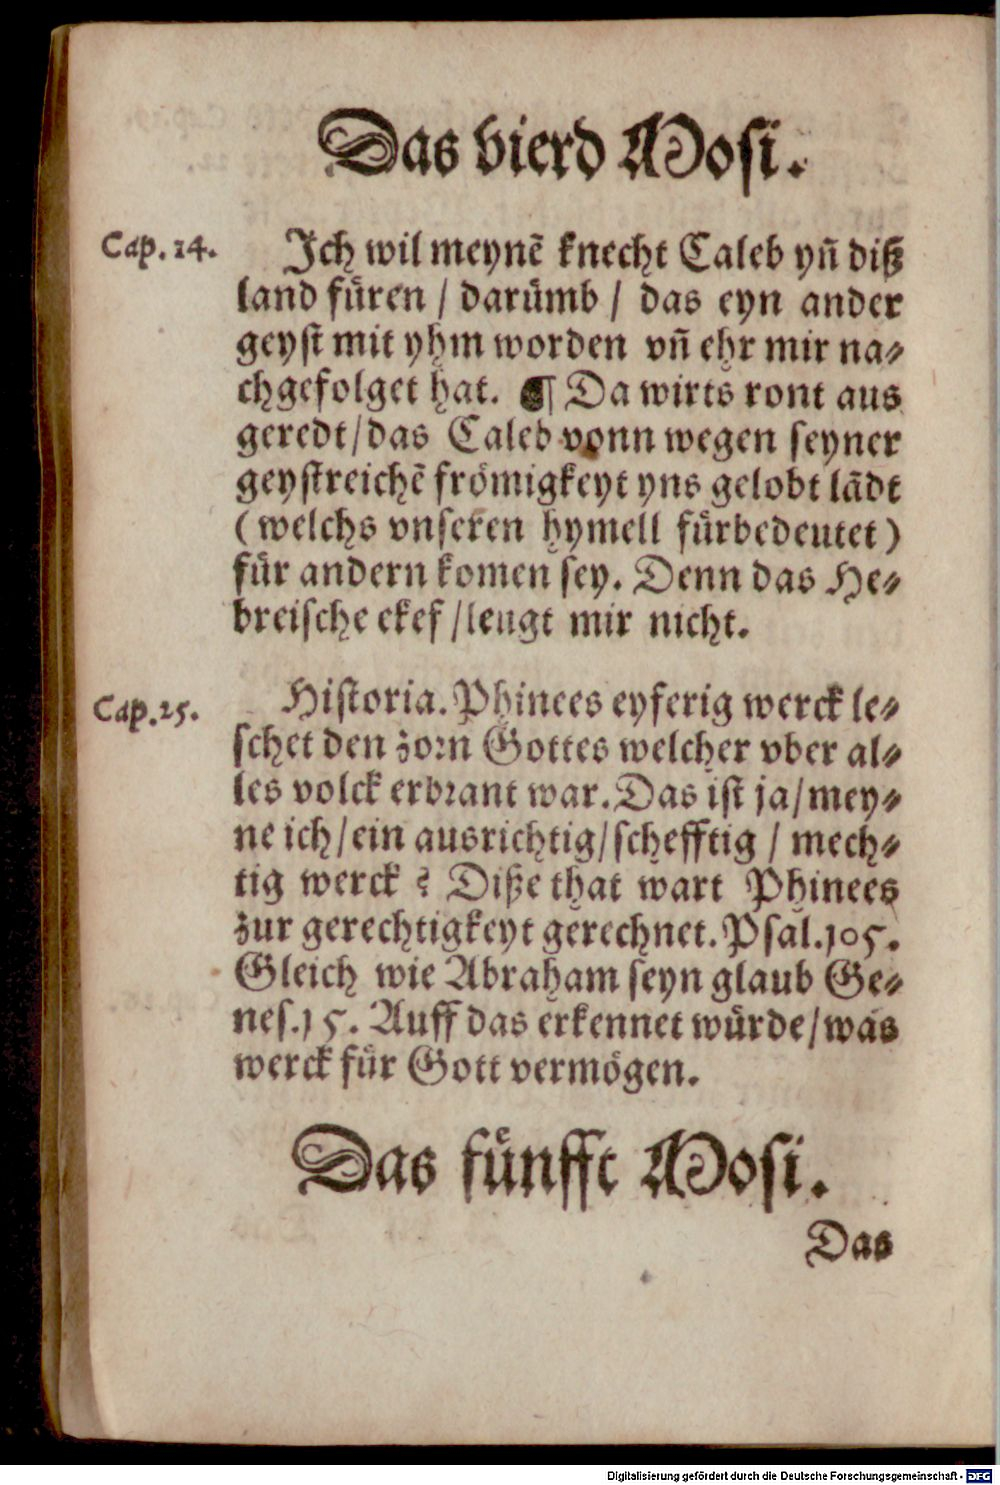 Das vierd Mosi.
Cap. 14.
Ich wil meynẽ knecht Caleb yñ diß
land fuͤren / daruͤmb / das eyn ander
geyst mit yhm worden vñ ehr mir na⸗
chgefolget hat. ¶ Da wirts ront aus
geredt/das Caleb vonn wegen seyner
geystreichẽ froͤmigkeyt yns gelobt lãdt
(welchs vnseren hymell fuͤrbedeutet)
fuͤr andern komen sey. Denn das He⸗
breische ekef /leugt mir nicht.
Cap. 25.
Historia. Phinees eyferig werck le⸗
schet den zorn Gottes welcher vber al⸗
les volck erbrant war. Das ist ja/mey⸗
ne ich/ein ausrichtig/schefftig / mech⸗
tig werck ? Diße that wart Phinees
zur gerechtigkeyt gerechnet. Psal.105.
Gleich wie Abraham seyn glaub Ge⸗
nes.15. Auff das erkennet wuͤrde/was
werck fuͤr Gott vermoͤgen.
Das fuͤnfft Mosi.
Das
Digitalisierung gefördert durch die Deutsche Forschungsgemeinschaft - DFG